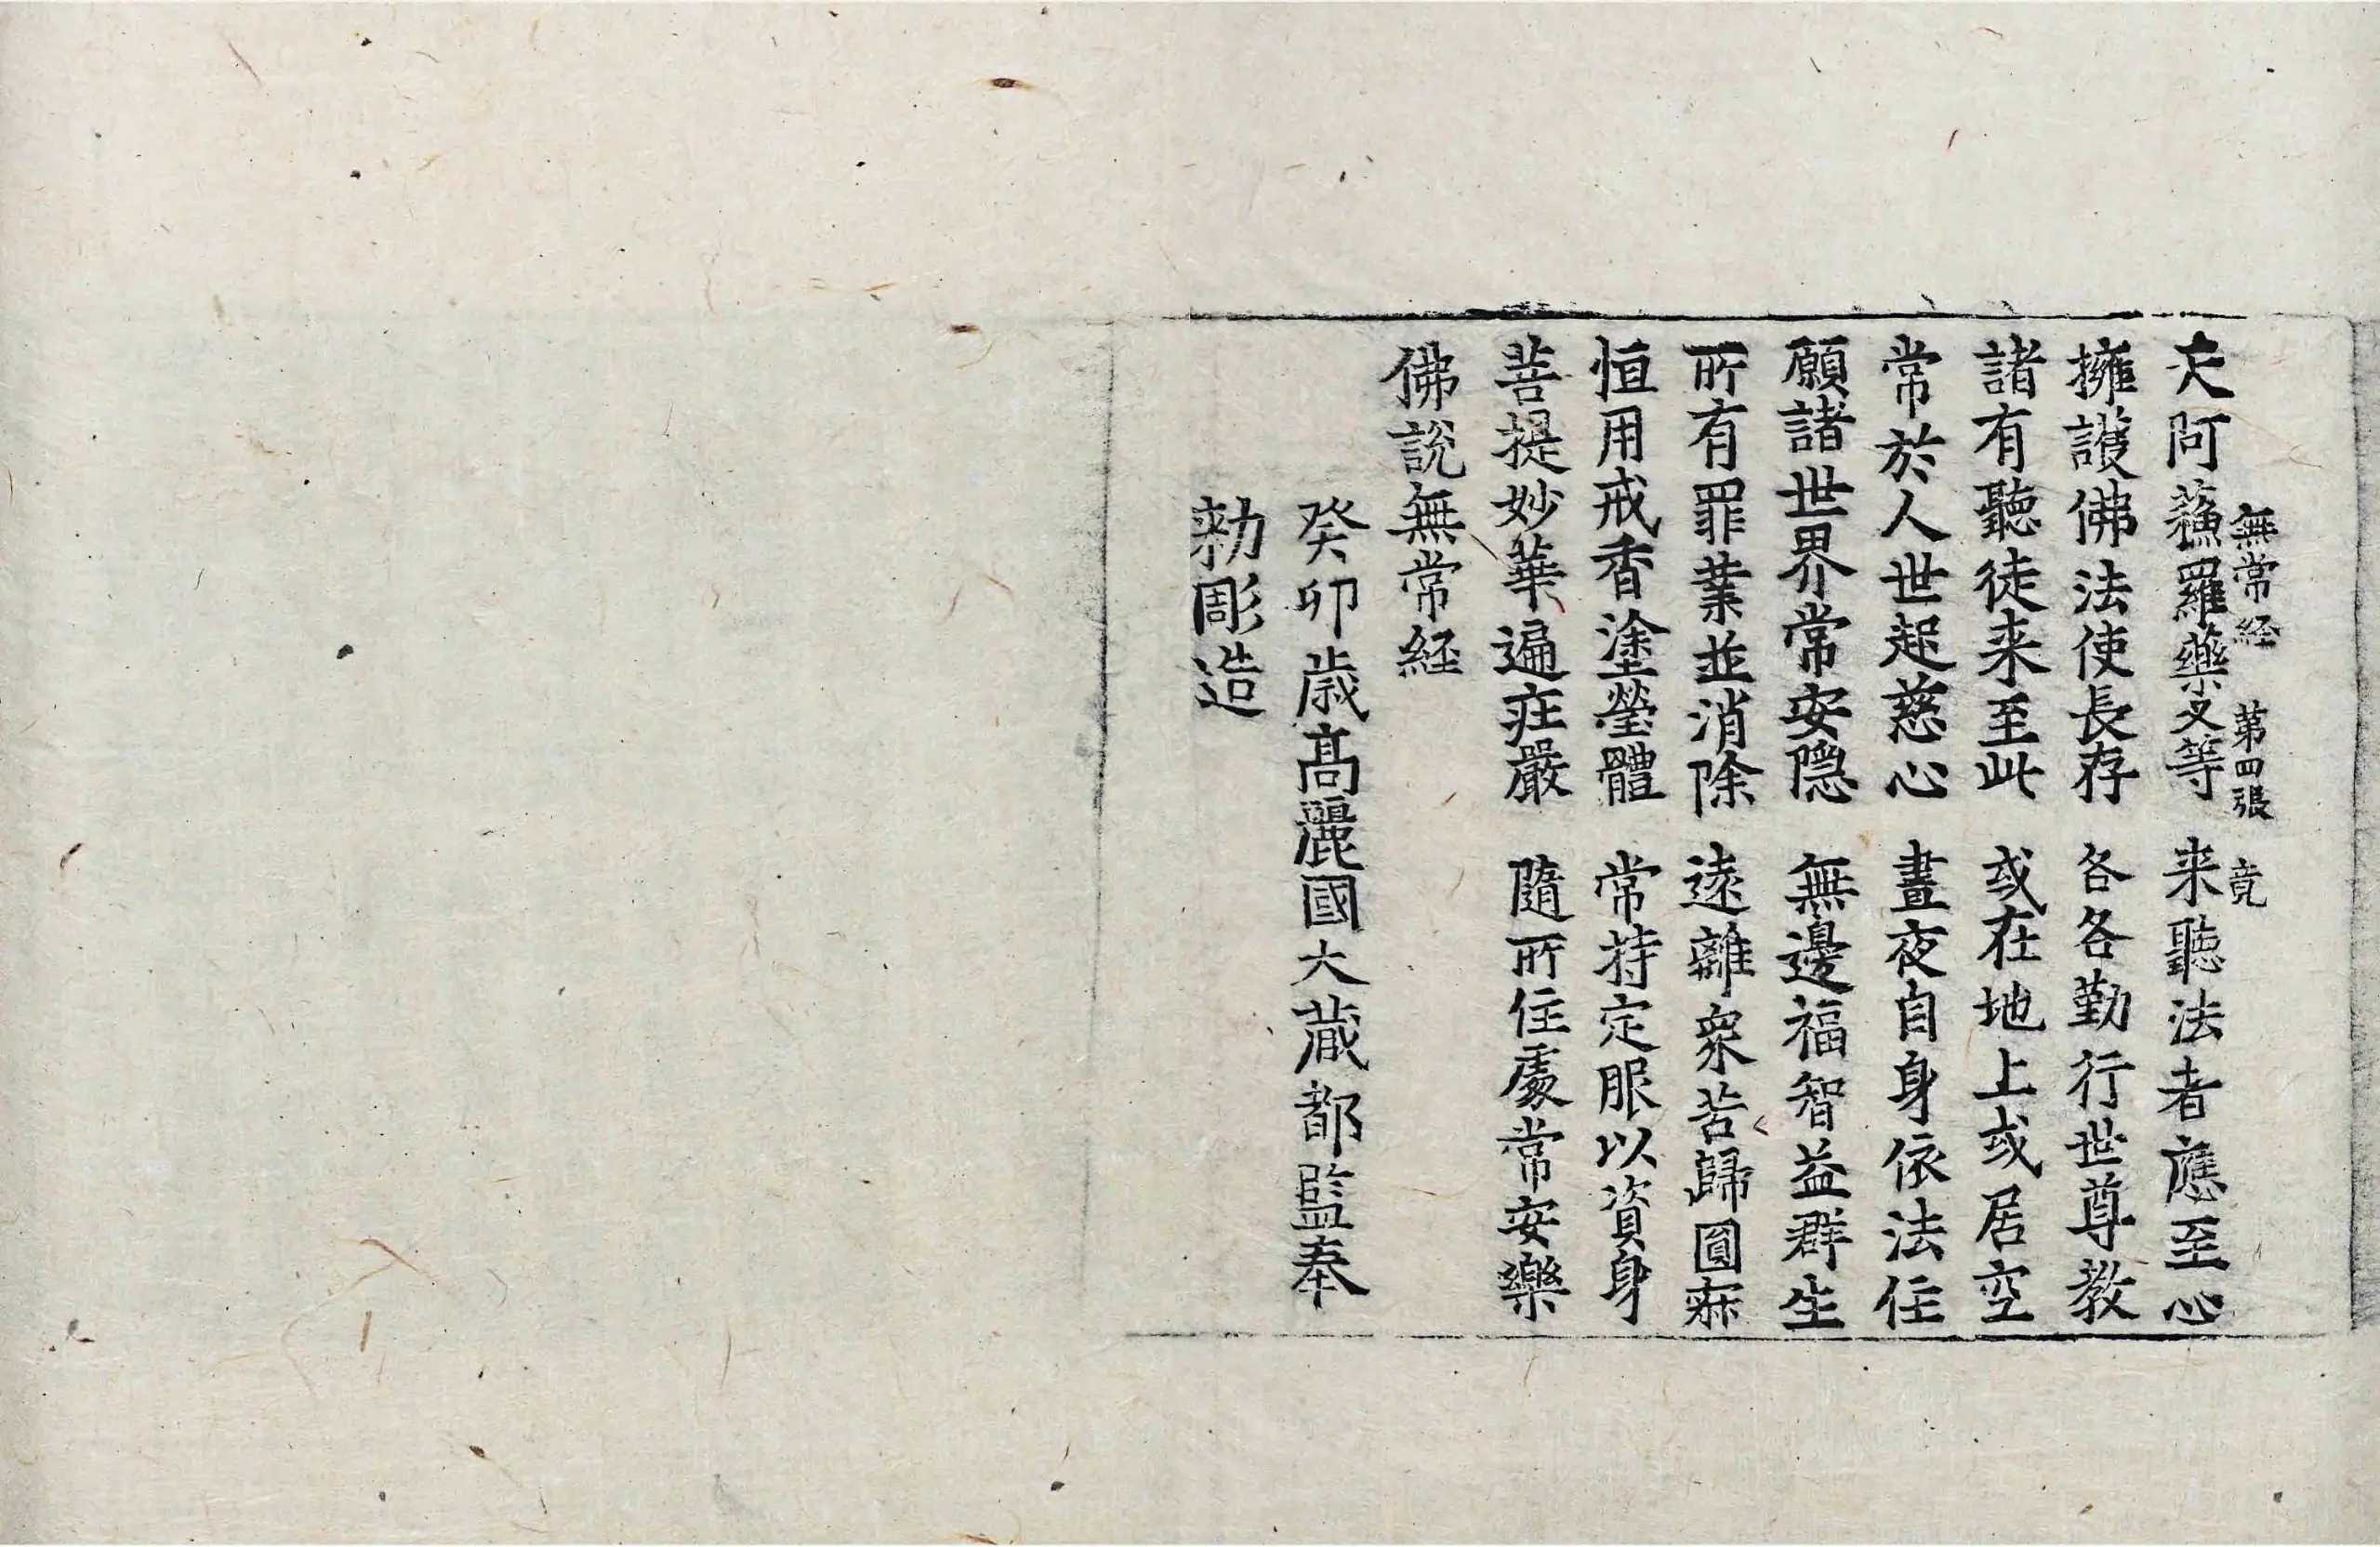 無常経 第四張 竟
天阿蘓羅藥叉等 来聽法者應至心
擁護佛法使長存 各各勤行世尊教
諸有聽徒来至此 或在地上或居空
常於人世起慈心 晝夜自身依法住
願諸世界常安隱 無邊福智益群生
所有罪業並消除 逺離衆苦歸圓寂
恒用戒香塗瑩體 常持定服以資身
菩提妙華遍莊嚴 隨所住處常安樂
佛說無常経
癸卯歳髙麗國大藏都監奉
勑彫造